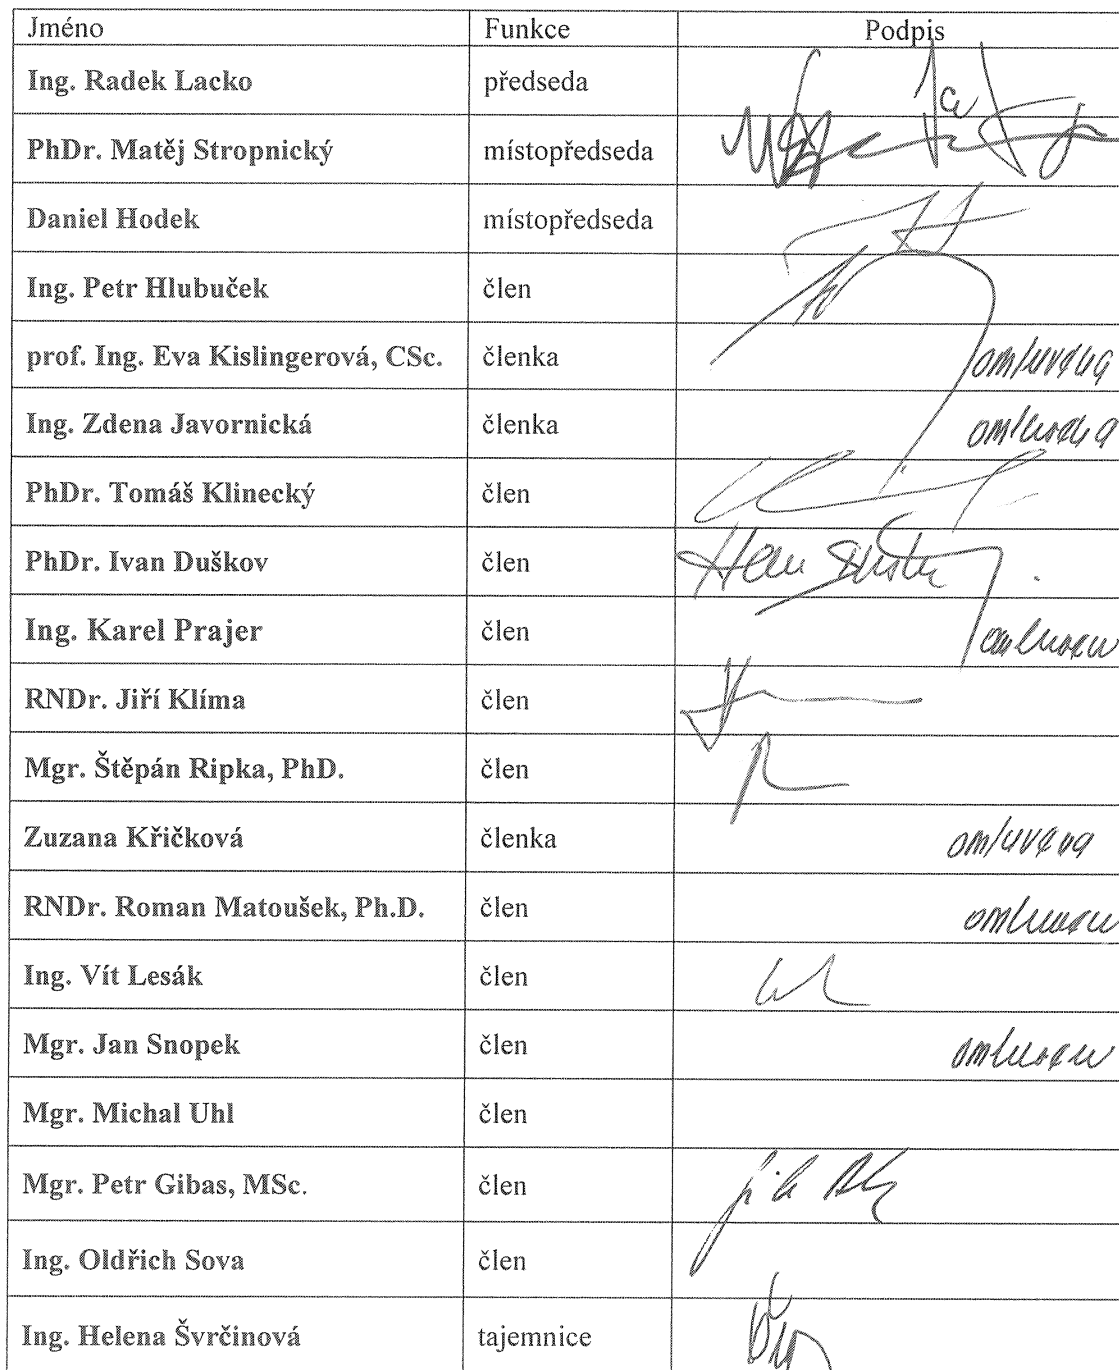 Jméno Funkce Podpis
Ing. Radek Lacko předseda
PhDr. Matěj Stropnický místopředseda
Daniel Hodek místopředseda
Ing. Petr Hlubuček člen
prof. Ing. Eva Kislingerová, CSc. členka omluvena
Ing. Zdena Javornická členka omluvena
PhDr. Tomáš Klinecký člen
PhDr. Ivan Duškov člen
Ing. Karel Prajer člen omluven
RNDr. Jiří Klíma člen
Mgr. Štěpán Ripka, PhD. člen
Zuzana Křičková členka omluvena
RNDr. Roman Matoušek, Ph.D. člen omluven
Ing. Vít Lesák člen
Mgr. Jan Snopek člen omluven
Mgr. Michal Uhl člen
Mgr. Petr Gibas, MSc. člen
Ing. Oldřich Sova člen
Ing. Helena Švrčinová tajemnice